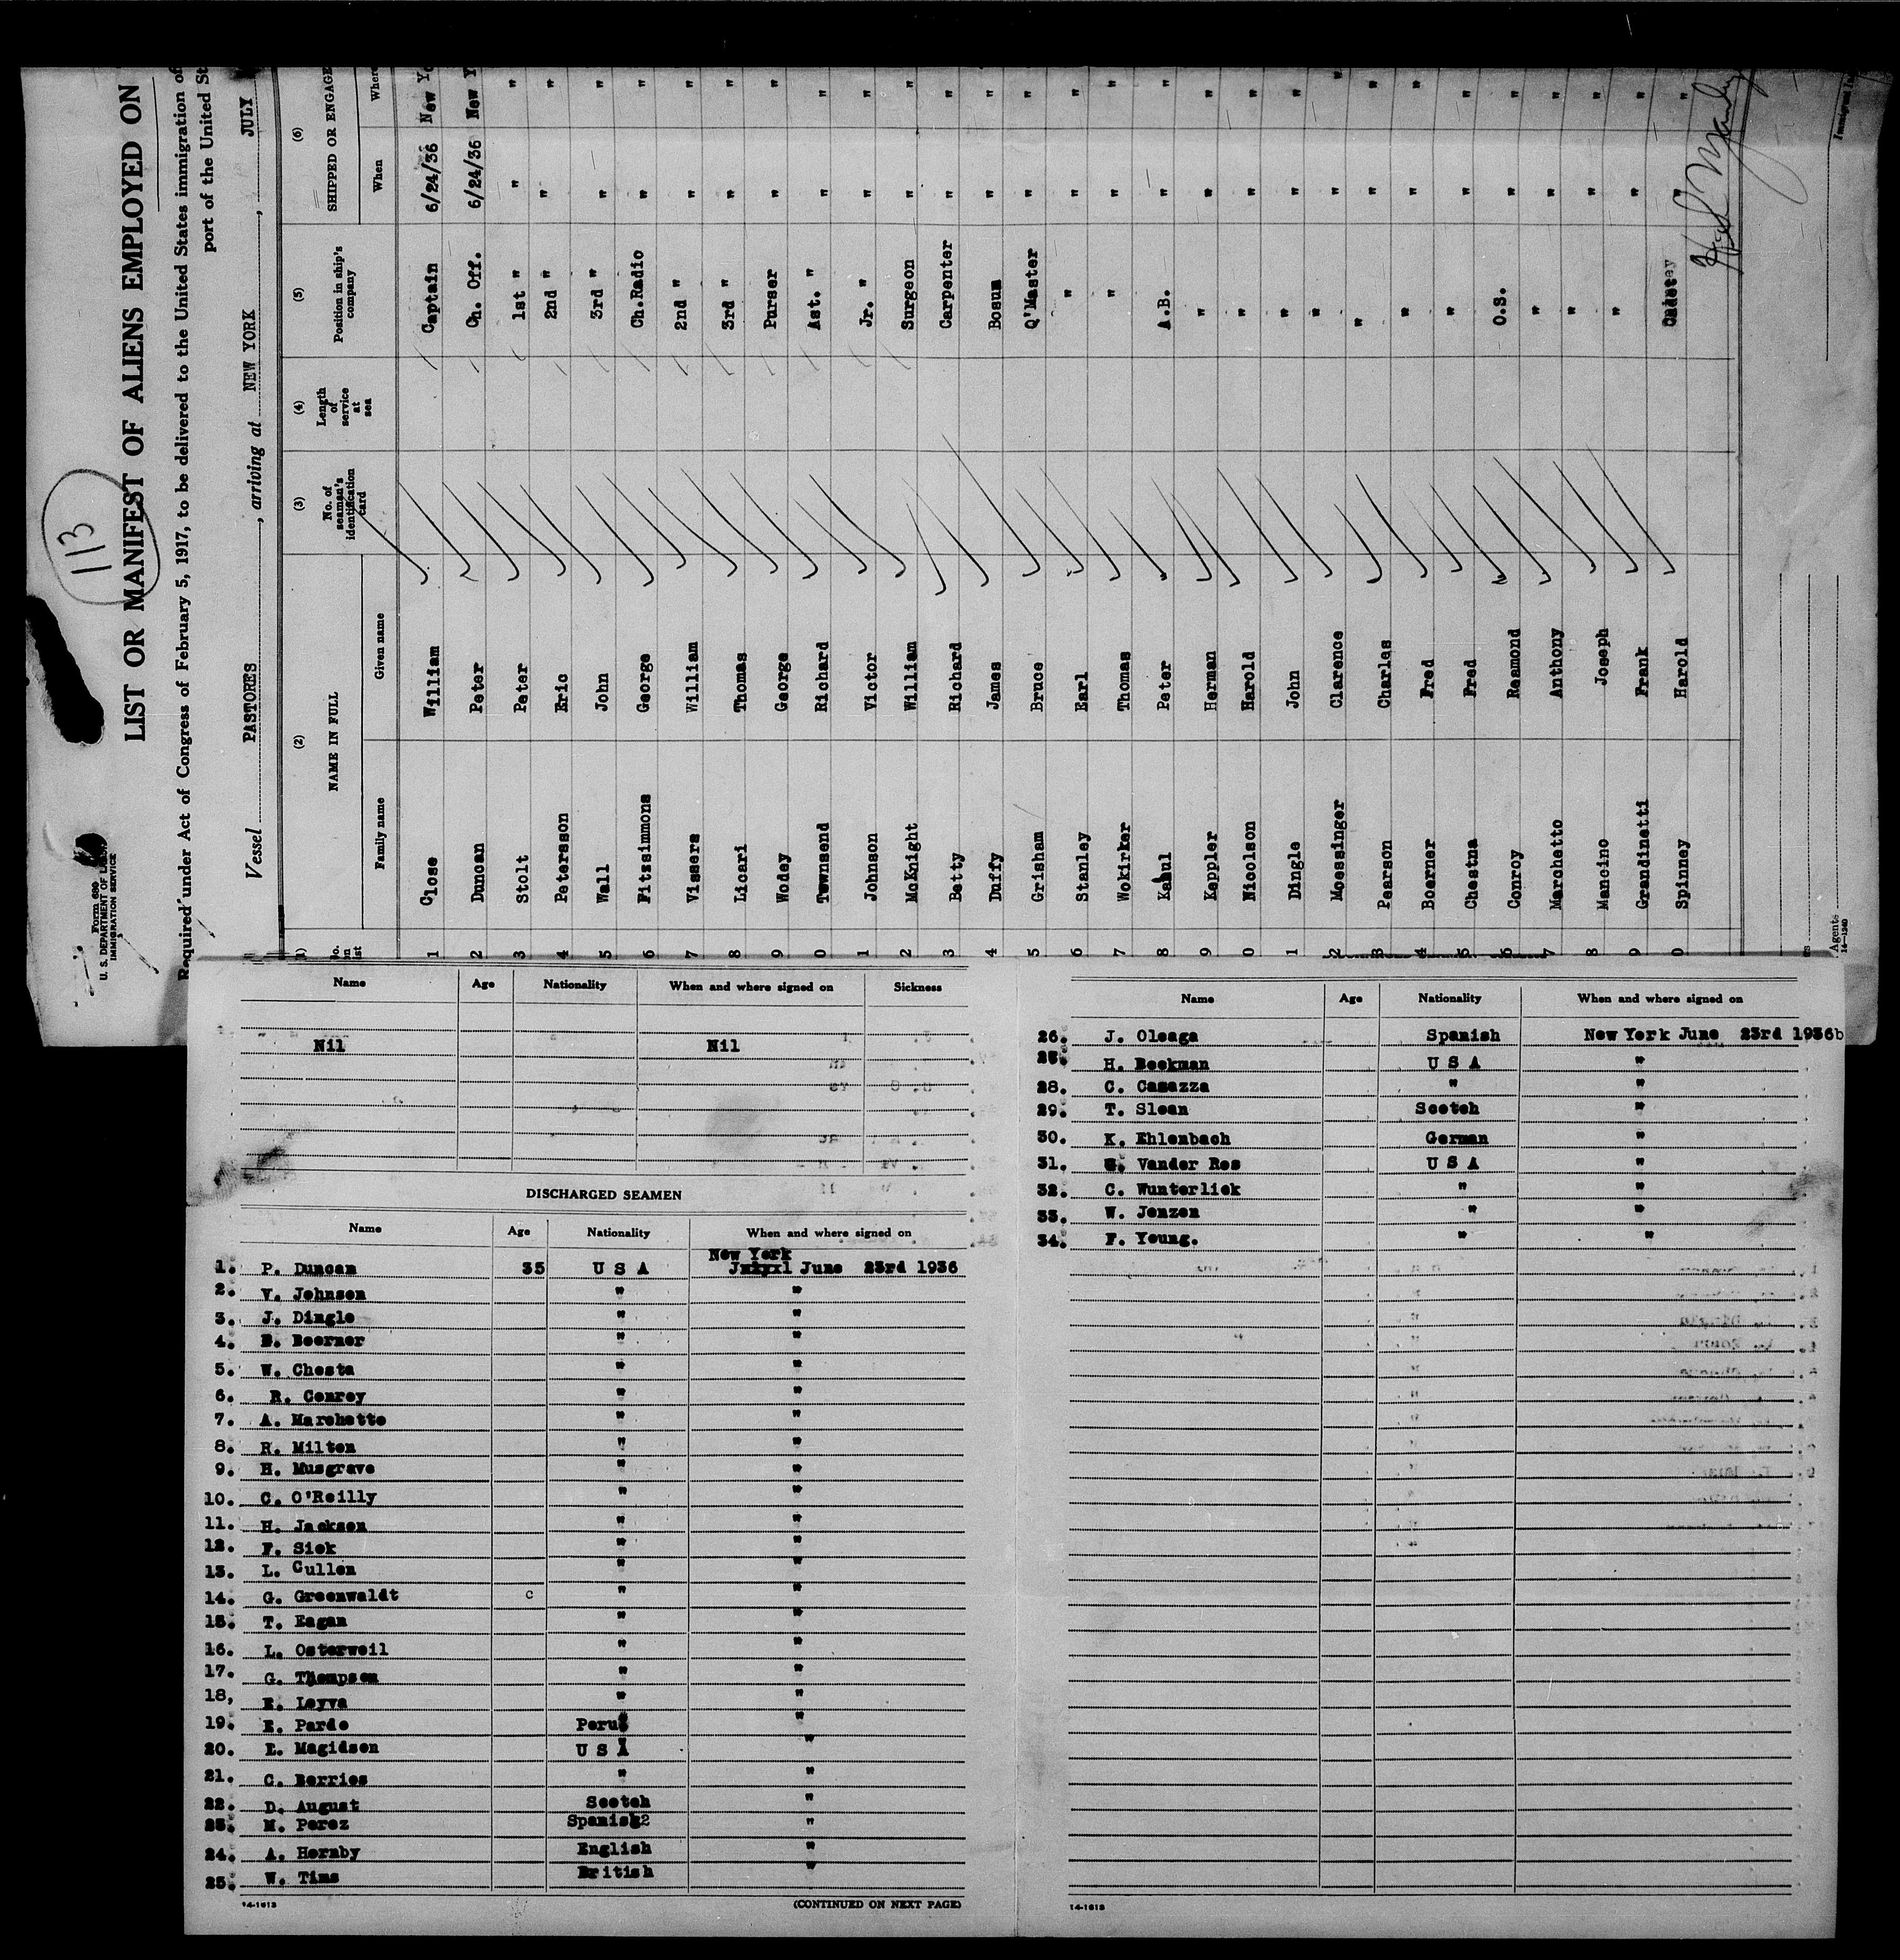 113
Form 680
U. S. DEPARTMENT OF LABOR
IMMIGRATION SERVICE
LIST OR MANIFEST OF ALIENS EMPLOYED ON
Required under Act of Congress of February 5, 1917, to be delivered to the United States immigration of
port of the United St
Vessel PASTORES, arriving at NEW YORK, JULY
(2) (3) (4) (5) (6)
NAME IN FULL No. of seaman's identification card Length of service at sea Position in ship's company SHIPPED OR ENGAGE
Family name Given name When Where
1 Close William Captain 6/24/36 New Yo
2 Duncan Peter Ch. Off. 6/24/36 New Y
3 Stolt Peter 1st " " "
4 Petersson Eric 2nd " " "
5 Wall John 3rd " " "
6 Fitzsimmons George Ch.Radio " "
7 Vissers William 2nd " " "
8 Licari Thomas 3rd " " "
9 Wodey George Purser " "
0 Townsend Richard Ast. " " "
1 Johnson Victor Jr. " " "
2 McKnight William Surgeon " "
3 Betty Richard Carpenter " "
4 Duffy James Bosun " "
5 Grisham Bruce Q'Master " "
6 Stanley Earl " " "
7 Wokirker Thomas " " "
8 Kahul Peter A.B. " "
9 Keppler Herman " " "
0 Nicolson Harold " " "
1 Dingle John " " "
2 Moessinger Clarence " " "
3 Pearson Charles " " "
4 Boerner Fred " " "
5 Chestna Fred " " "
6 Conroy Reamond O.S. " "
7 Marchetto Anthony " " "
8 Mancino Joseph " " "
9 Grandinetti Frank " " "
0 Spinney Harold " "
Agents
14-1240
Name Age Nationality When and where signed on Sickness
Nil Nil
DISCHARGED SEAMEN
Name Age Nationality When and where signed on
New York
1. P. Duncan 35 U S A June 23rd 1936
2. V. Johnson " "
3. J. Dingle " "
4. B. Boerner " "
5. W. Chesta " "
6. R. Conroy " "
7. A. Marchetto " "
8. R. Milton " "
9. H. Musgrave " "
10. C. O'Reilly " "
11. H. Jackson " "
12. F. Sick " "
13. L. Cullen " "
14. G. Greenwaldt c " "
15. T. Eagan " "
16. L. Osterweil " "
17. G. Thompson " "
18, E. Leyva " "
19. E. Pardo Peru "
20. L. Magidson U S A "
21. C. Berries " "
22. D. August Scotch "
23. M. Perez Spanish2 "
24. A. Hornby English "
25. W. Tims British "
14-1613 (CONTINUED ON NEXT PAGE)
Name Age Nationality When and where signed on
26. J. Oleaga Spanish New York June 23rd 1936b
H. Beekman U S A "
28. C. Casazza " "
29. T. Sloan Scotch "
30. K. Ehlenbach German "
31. Vander Ros U S A "
32. C. Wunterlick " "
33. W. Jenzen " "
34. F. Young. " "
14-1613